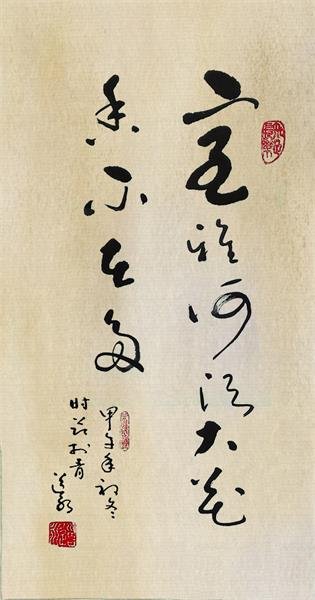 室雅何须大花
香不在多
甲午年初冬
时于青